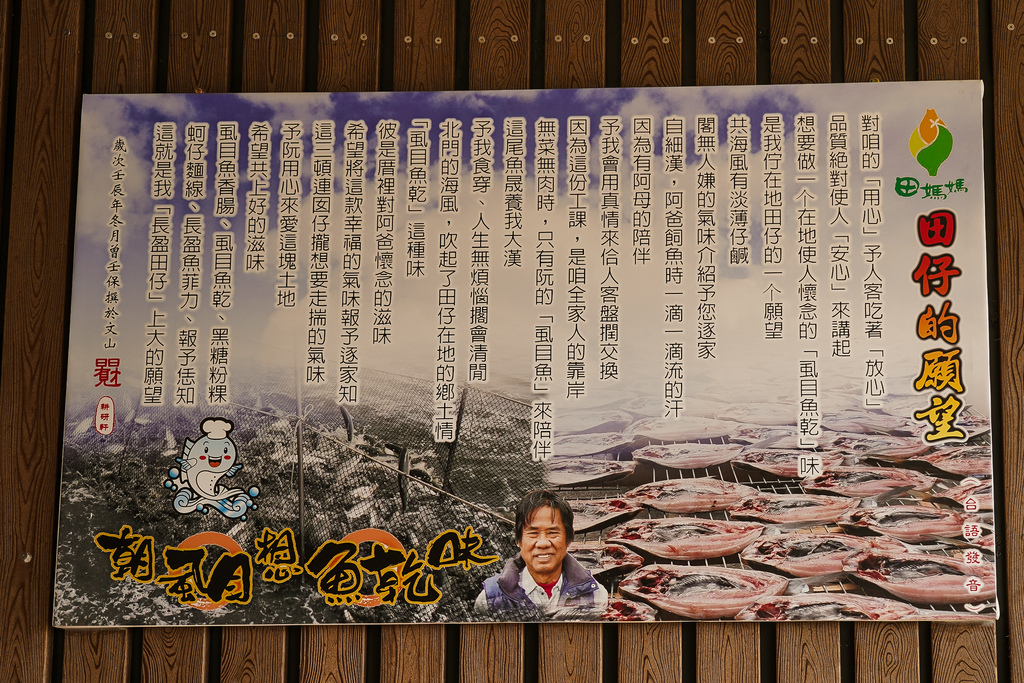 田媽媽
田仔的願望
︵台語發音︶
對咱的「用心」予人客吃著「放心」
品質絕對使人「安心」來講起
想要做一个在地使人懷念的「虱目魚乾」味
是我佇在地田仔的一个願望
共海風有淡薄仔鹹
閣無人嫌的氣味介紹予您逐家
自細漢，阿爸飼魚時一滴一滴流的汗
因為有阿母的陪伴
予我會用真情來佮人客盤撋交換
因為這份工課，是咱全家人的靠岸
無菜無肉時，只有阮的「虱目魚」來陪伴
這尾魚晟養我大漢
予我食穿、人生無煩惱擱會清閒
北門的海風，吹起了田仔在地的鄉土情
「虱目魚乾」這種味
彼是厝裡對阿爸懷念的滋味
希望將這款幸福的氣味報予逐家知
這二頓連囡仔攏想要走揣的氣味
予阮用心來愛這塊土地
希望共上好的滋味
虱目魚香腸、虱目魚乾、黑糖粉粿
蚵仔麵線、長盈魚菲力、報予恁知
這就是我「長盈田仔」上大的願望
歲次壬辰年冬月曾壬保撰於文山
耕研軒
朝虱目想魚乾味